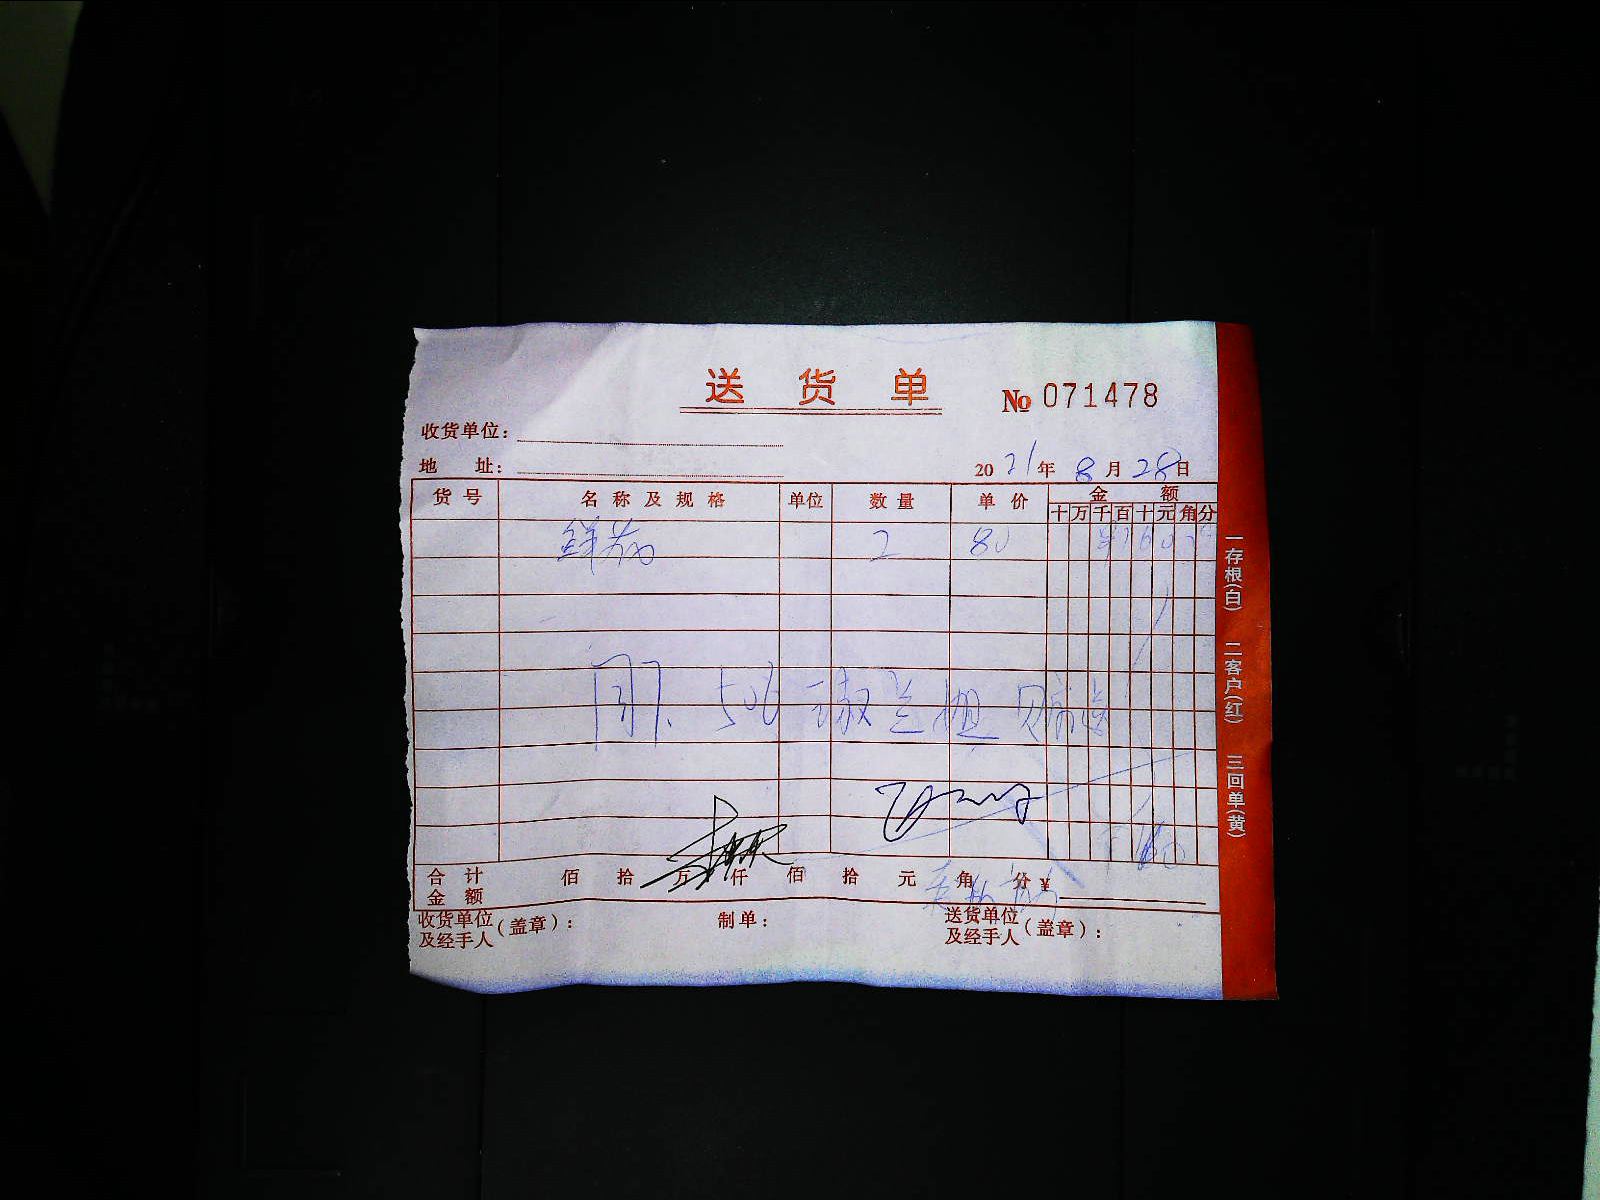 送 货 单
№ 071478
收货单位:
地 址:
2021年 8月 28日
货 号 名 称 及 规 格 单位 数 量 单 价 金 额
十 万 千 百 十 元 角 分
鲜花 2 80 ¥160.00
506
160
合 计 金 额 佰 拾 万 仟 佰 拾 元 角 分 ¥
收货单位及经手人(盖章): 制单: 送货单位及经手人(盖章):
一存根(白) 二客户(红) 三回单(黄)